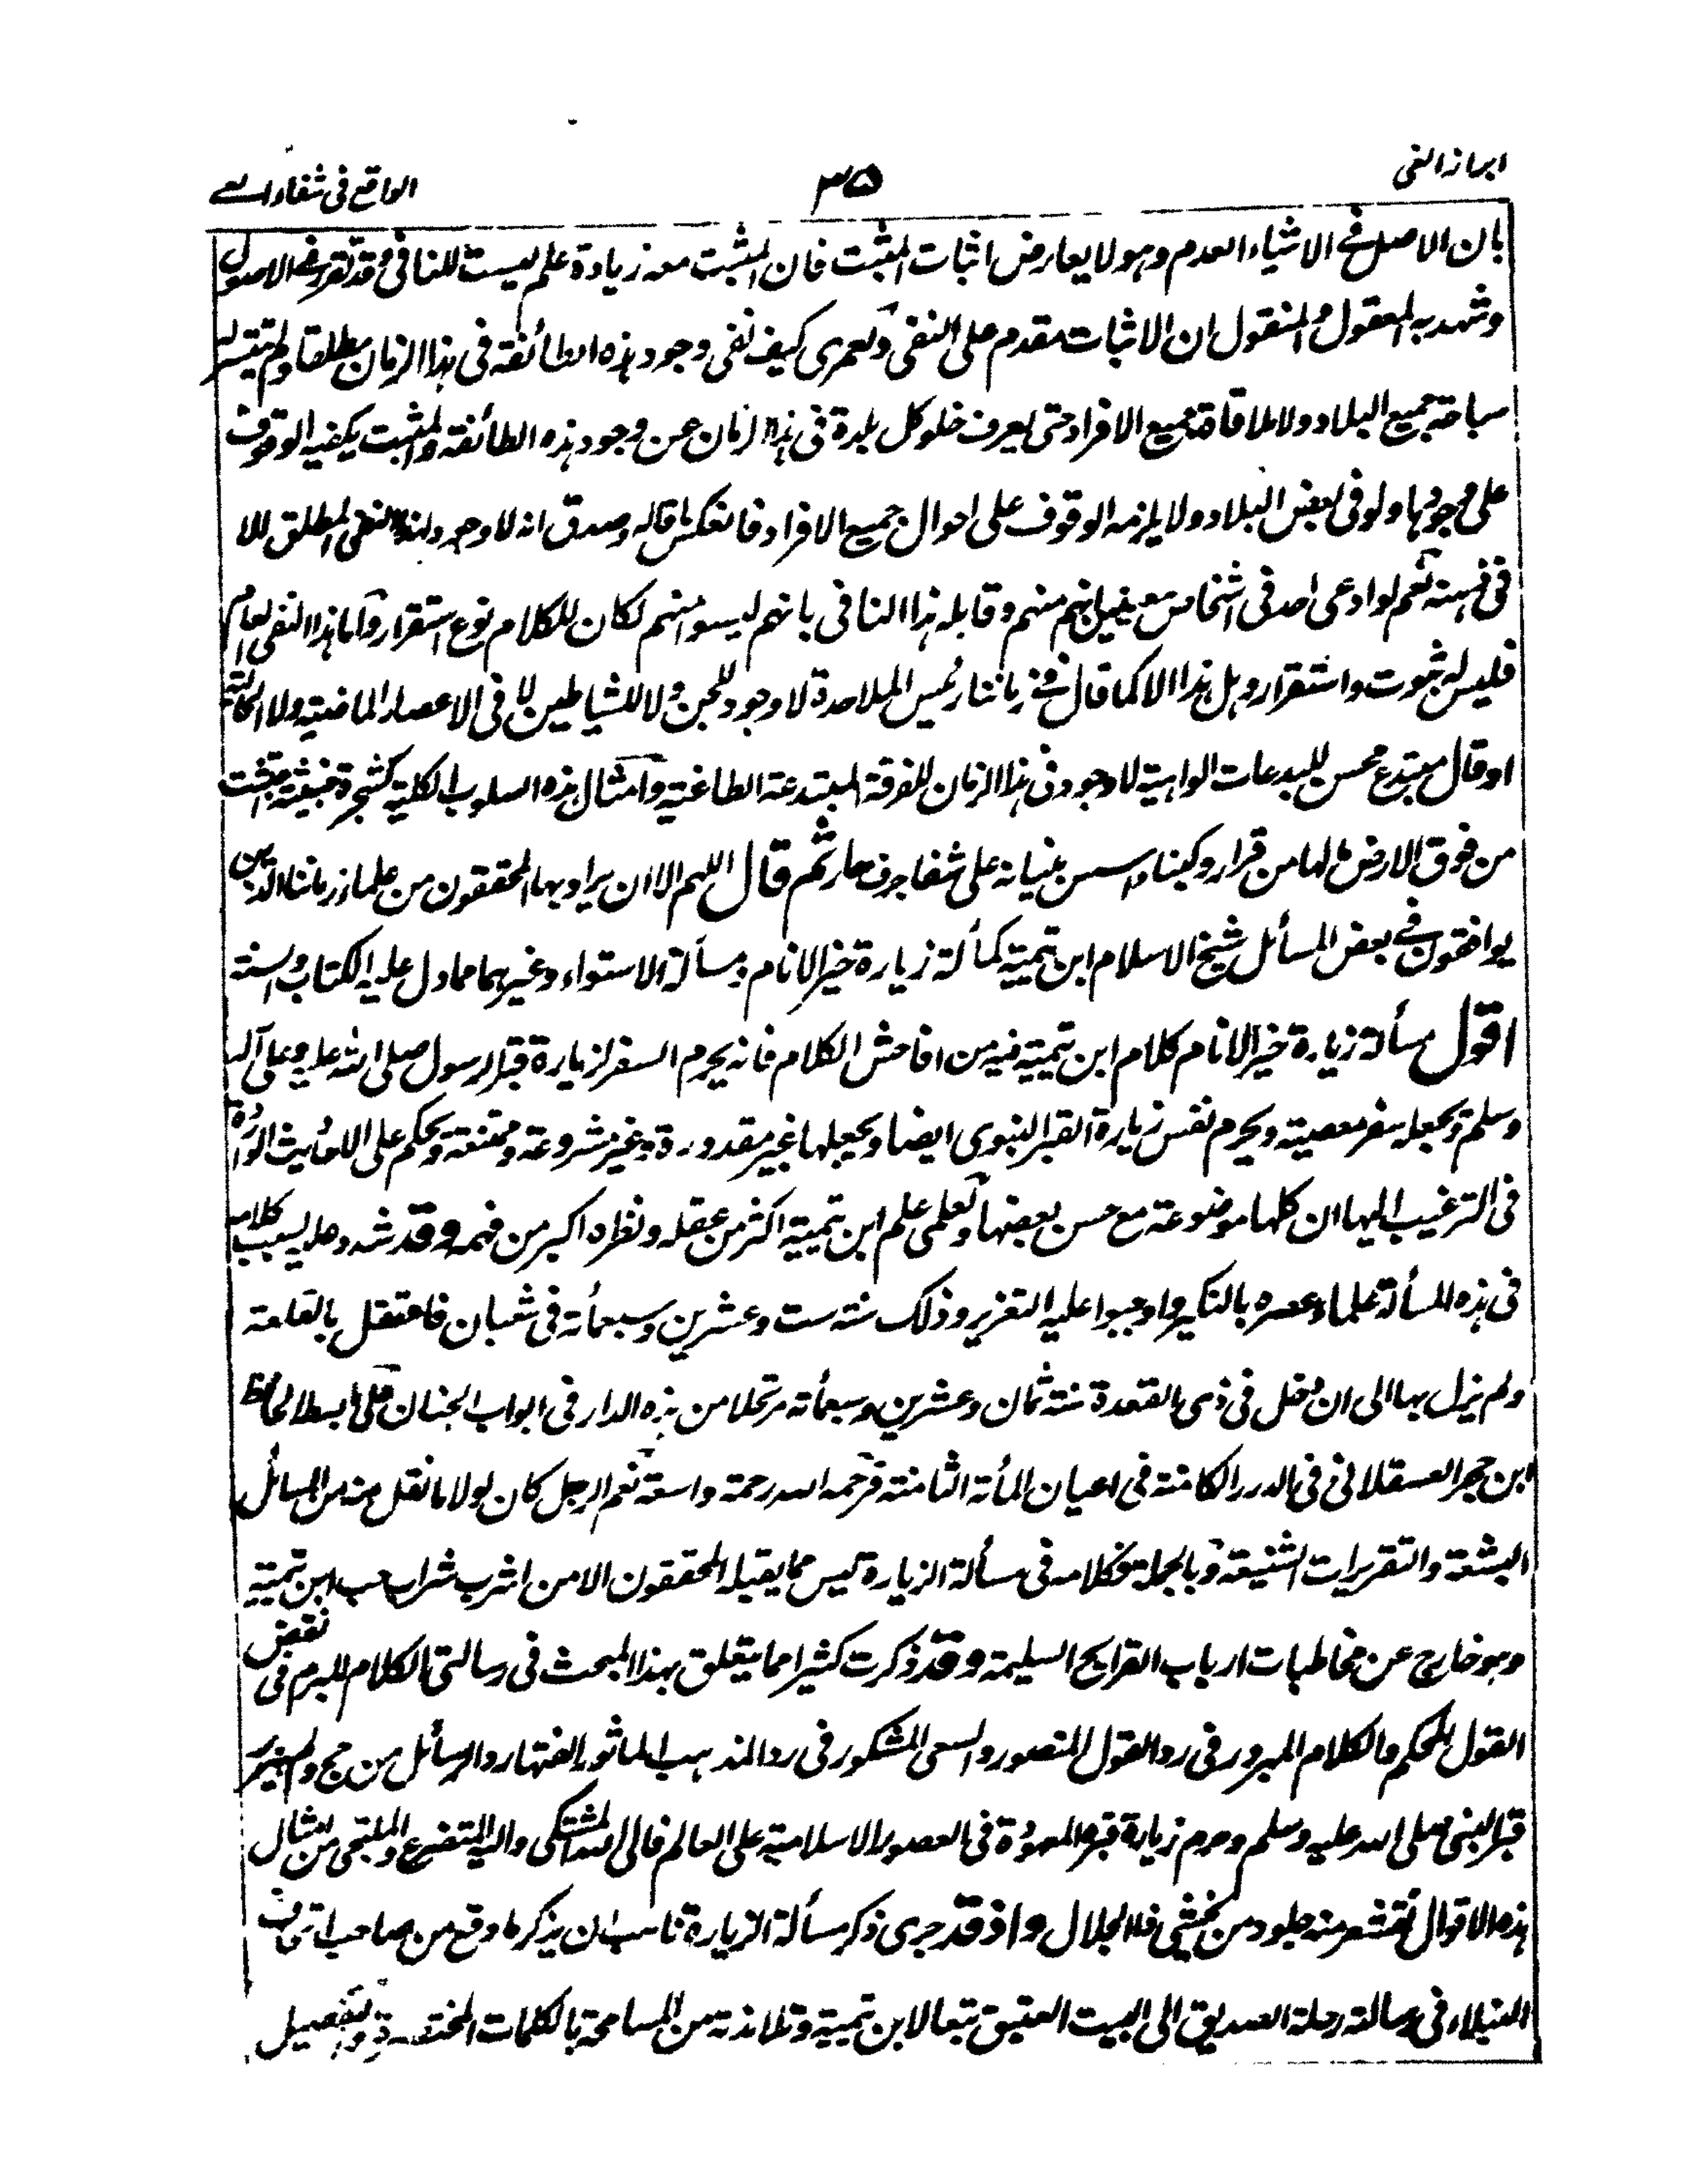 ابراز الغی
۳۵
الواقع فی شفاء العی
بان الاصل فی الاشیاء العدم وہو لا یعارض اثبات المثبت فان المثبت معہ زیادة علم لیست للنافی وقد تقرر فی الاصول
وشہد بہ المعقول والمنقول ان الاثبات مقدم علی النفی ولعمری کیف نفی وجود ہذہ الطائفة فی ہذا الزمان مطلقا ولم تتیسر لہ
سیاحة جمیع البلاد ولا ملاقاة جمیع الافراد حتی یعرف خلو کل بلدة فی ہذا الزمان عن وجود ہذہ الطائفة والمثبت یکفیہ الوقوف
علی وجودہا ولو فی بعض البلاد ولا یلزمہ الوقوف علی احوال جمیع الافراد فانعکس ما قالہ وصدق انہ لا وجود لہذا النفی المطلق الا
فی ذہنہ نعم لو ادعی احد فی اشخاص معینین انہم منہم وقابلہ ہذا النافی بانہم لیسوا منہم لکان للکلام نوع استقرار واما ہذا النفی العام
فلیس لہ ثبوت واستقرار وہل ہذا الا کما قال فی زماننا رئیس الملاحدة لا وجود للجن ولا للشیاطین لا فی الاعصار الماضیة ولا الحالیة
او قال مبتدع محسن للبدعات الواہیة لا وجود فی ہذا الزمان للفرقة المبتدعة الطاغیة وامثال ہذہ السلوب الکلیة کشجرة خبیثة اجتثت
من فوق الارض ما لہا من قرار وکبناء اسس بنیانہ علی شفا جرف ہار ثم قال اللہم الا ان یراد بہا المحققون من علماء زماننا الذین
یوافقون فی بعض المسائل شیخ الاسلام ابن تیمیة کمسألة زیارة خیر الانام ومسألة الاستواء وغیرہما مما دل علیہ الکتاب والسنة
اقول مسألة زیارة خیر الانام کلام ابن تیمیة فیہ من افاحش الکلام فانہ یحرم السفر لزیارة قبر الرسول صلی اللہ علیہ وعلی آلہ
وسلم ویجعلہ سفر معصیة ویحرم نفس زیارة القبر النبوی ایضا ویجعلہا غیر مقدورة وغیر مشروعة وممتنعة ویحکم علی الاحادیث الواردة
فی الترغیب الیہا ان کلہا موضوعة مع حسن بعضہا ولعلمی علم ابن تیمیة اکثر من عقلہ ونظرہ اکبر من فہمہ وقد شدد علیہ بسبب کلامہ
فی ہذہ المسألة علماء عصرہ بالنکیر واوجبوا علیہ التعزیر وذلک سنة ست وعشرین وسبعمأة فی شعبان فاعتقل بالقلعة
ولم یزل بہا الی ان دخل فی ذی القعدة سنة ثمان وعشرین وسبعمأة مرتحلا من ہذہ الدار فی ابواب الجنان علی ما بسطہ الحافظ
ابن حجر العسقلانی فی الدرر الکامنة فی اعیان المأة الثامنة فرحمہ اللہ رحمة واسعة نعم الرجل کان لولا ما نقل منہ من المسائل
البشعة والتقریرات الشنیعة وبالجملة فکلامہ فی مسألة الزیارة لیس مما یقبلہ المحققون الا من اشرب شراب حب ابن تیمیة
وہو خارج عن مخاطبات ارباب القرایح السلیمة وقد ذکرت کثیرا مما یتعلق بہذا المبحث فی رسالتی الکلام المبرم فی نقض
القول المحکم والکلام المبرور فی رد القول المنصور والسعی المشکور فی رد المذہب الماثور الفتہا ردا لرسائل من حج ولم یزر
قبر النبی صلی اللہ علیہ وسلم وحرم زیارة قبرہ المعہودة فی العصور الاسلامیة علی العالم فالی اللہ المشتکی والیہ المتضرع والملتجی من امثال
ہذہ الاقوال تقشعر منہ جلود من یخشی ذا الجلال واذ قد جری ذکر مسألة الزیارة ناسب ان یذکر ما وقع من صاحب اتحاف
النبلاء فی رسالتہ رحلة الصدیق الی البیت العتیق تبعا لابن تیمیة وتلامذتہ من المسامحة بالکلمات المختصرة والتفصیل